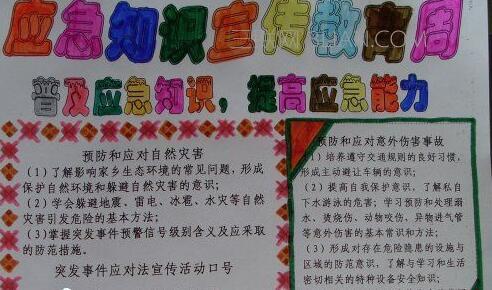 应急知识宣传教育周
普及应急知识，提高应急能力
预防和应对自然灾害
（1）了解影响家乡生态环境的常见问题，形成
保护自然环境和躲避自然灾害的意识；
（2）学会躲避地震、雷电、冰雹、水灾等自然
灾害引发危险的基本方法；
（3）掌握突发事件预警信号级别含义及应采取
的防范措施。
突发事件应对法宣传活动口号
预防和应对意外伤害事故
（1）培养遵守交通规则的良好习惯，
形成主动避让车辆的意识；
（2）提高自我保护意识，了解私自
下水游泳的危害；学习预防和处理溺
水、烫烧伤、动物咬伤、异物进气管
等意外伤害的基本常识和方法；
（3）形成对存在危险隐患的设施与
区域的防范意识，了解与学习和生活
密切相关的特种设备安全知识；